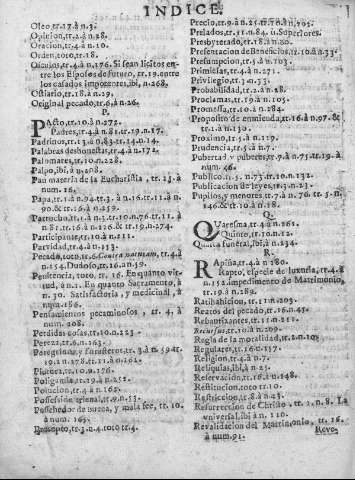 INDICE.
Oleo, tr.17.à n.3.
Opinion, tr.2.à n.28.
Oracion, tr.4.à n.10.
Orden, toto tr.18.
Osculos, tr.4.à n.176. Si sean licitos en-
tre los Esposos de futuro, tr.19. entre
los casados impotentes, ibi, n.268.
Ostiario, tr.18.à n.29.
Original pecado, tr.6.à n.26.
P.
PActo, tr.10.à n.272.
Padres, tr.4.à n.81. tr.19.n.17.
Padrinos, tr.13.à n.83. tr.14.n.14.
Palabras deshonestas, tr.4.à n.172.
Palomares, tr.10.n.228.
Palpo, ibi, à n.208.
Pan materia de la Eucharistia, tr.15.à
num.16.
Papa, tr.1.à n.94. tr.3. à n.16. tr.11.à n.
90. & tr.16. à n.259.
Partícipante, tr.10.à n.111.
Parvidad, tr.4.à n.153.
Pecado, toto tr.6. Contra naturam, tr.4.à
n.154. Dudoso, tr.16.à n.19.
Penitencia, toto, tr. 16. En quanto vir-
tud, à n.1. En quanto Sacramento, à
n.30. Satisfactoria, y medicinal, à
num.186.
Pensamientos pecaminosos, tr. 4. à
num.208.
Perdidas cosas, tr.10.n.223.
Pereza, tr.6.n.163.
Pobreza, tr.10.n.176.
Poligamia, tr.19.à n.251.
Polucion, tr.4.à n.165.
Possession trienal, tr.9.n.53.
Possehedor de buena, y mala fee, tr. 10.
à num.163.
Precepto, tr.3.n.4. toto tr.4.
Precio, tr.9.à n.25. tr.10.à n.705.
Prelados, tr.11.n.84. ii. Superiores.
Presbyterado, tr.18.à n.80.
Presentacion de Beneficios, tr.10.à n.33.
Presumpcion, tr.5.à n.103.
Primicias, tr.4.à n.271.
Privilegio, tr.3.à n.73.
Probabilidad, tr.2.à n.28.
Proclamas, tr.19.à n.105.
Promessa, tr.10.à n.184.
Proposito de enmienda, tr.16.à n.97. &
tr.1.à n.130.
Proximo, tr.5.à n.119.
Prudencia, tr.5.à n.7.
Pubertad y puberes, tr.7.à n.75. tr.19.à
num.46.
Publico, n.5. n.73. tr.16.à n.132.
Publicacion de leyes, tr.3.n.23.
Pupilos, y menores, tr.7. à n.70. tr. 5. n.
146. & tr.10.à n.18.
Q.
QUaresma, tr.4.à n.161.
Quinto, tr.10.n.12.
Quarta funeral, ibi, à n.234.
R.
RApiña, tr.4.à n.180.
Rapto, especie de luxuria, tr.4.à
n.152. impedimento de Matrimonio,
tr.19.à n.289.
Ratihabicion, tr.11.n.203.
Reatos del pecado, tr.16.à n.45.
Rebautizantes, tr.11.à n.211.
Recursos, tr.10.à n.269.
Regla de la moralidad, tr.2.à n.10.
Regulares, tr.16.à n.157.
Religion, tr.5.à n.51.
Reliquias, ibi, à n.7.
Reservacion, tr.16.à n.148.
Restitucion, toto tr.10.
Restriccion, tr.8.à n.23.
Resurreccion de Christo, tr.2.n.8. La
universal, ibi à n.110.
Revalidacion del Matrimonio, tr.16.
à num.91.
Revo-